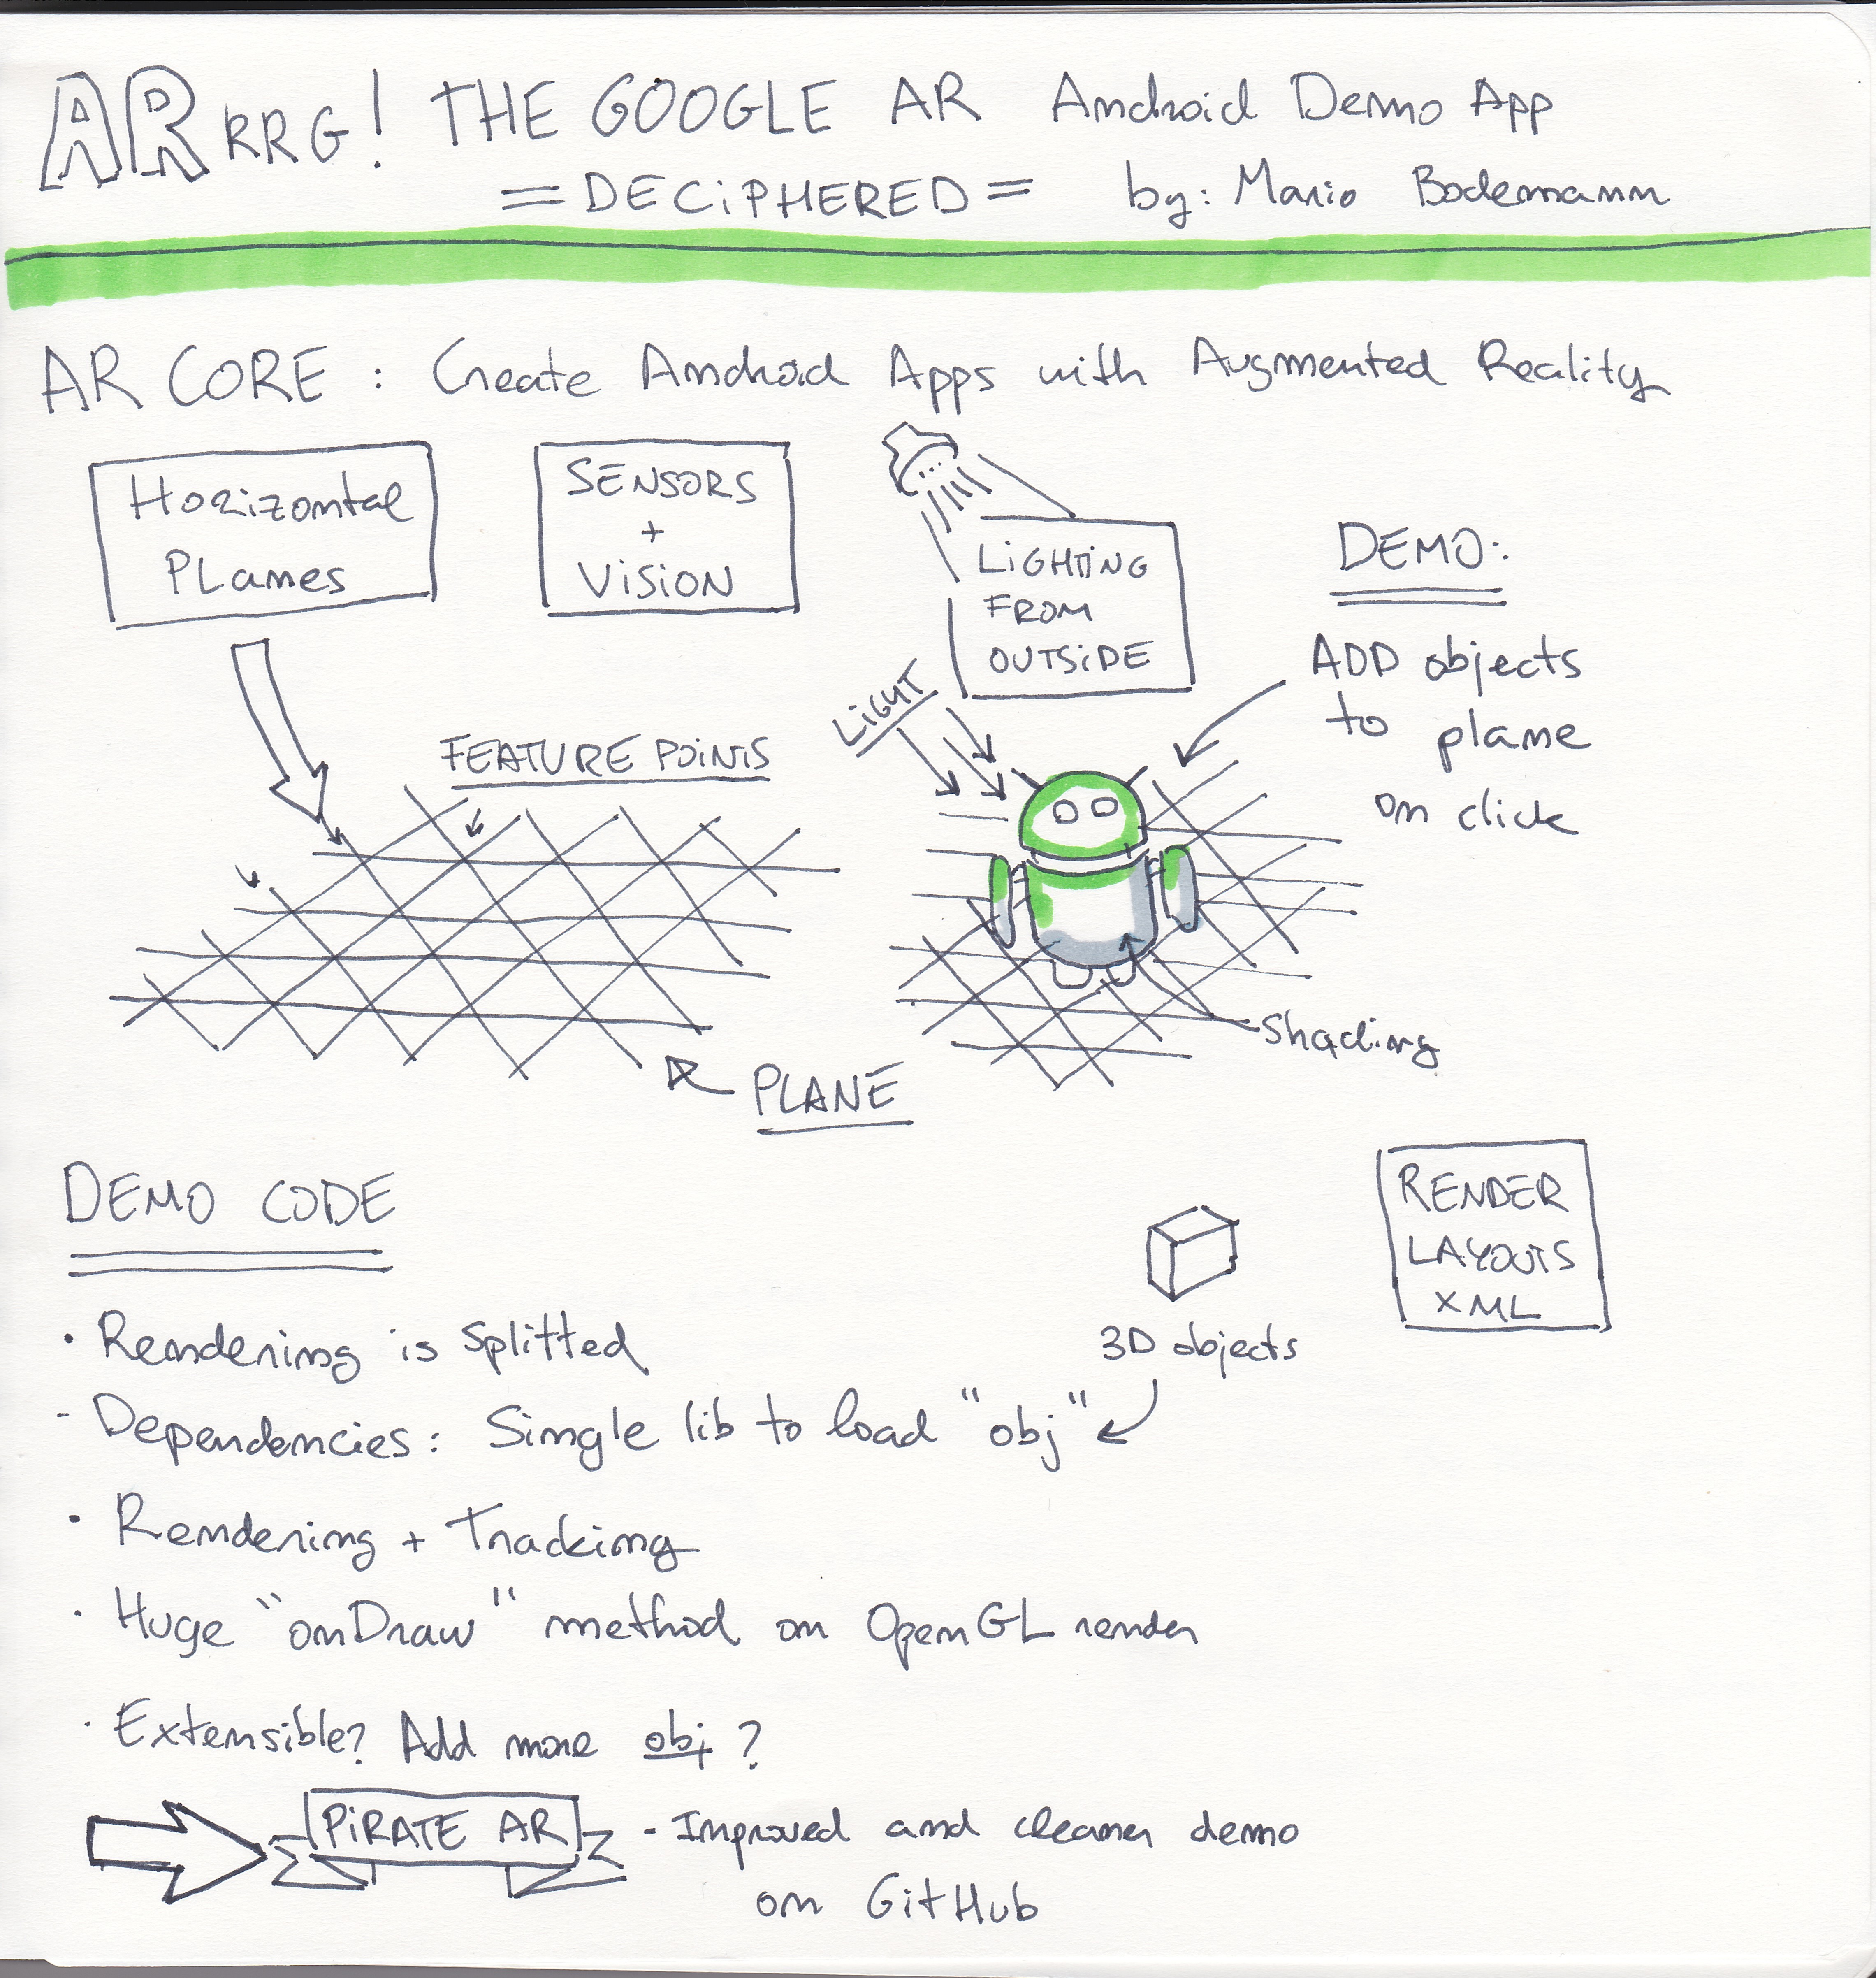 ARRRG! THE GOOGLE AR Android Demo App
= DECiPHERED = by: Mario Bodemann
AR CORE : Create Android Apps with Augmented Reality
Horizontal
PLanes
SENSORS
+
ViSiON
LiGHTiNG
FROM
OUTSiDE
DEMO:
ADD objects
to plane
on click
LiGHT
FEATURE POiNTS
Shading
PLANE
DEMO CODE
RENDER
LAYOUTS
XML
3D objects
• Rendering is splitted
- Dependencies: Single lib to load "obj"
• Rendering + Tracking
• Huge "onDraw" method on OpenGL render
• Extensible? Add more obj ?
PiRATE AR - Improved and cleaner demo
on GitHub